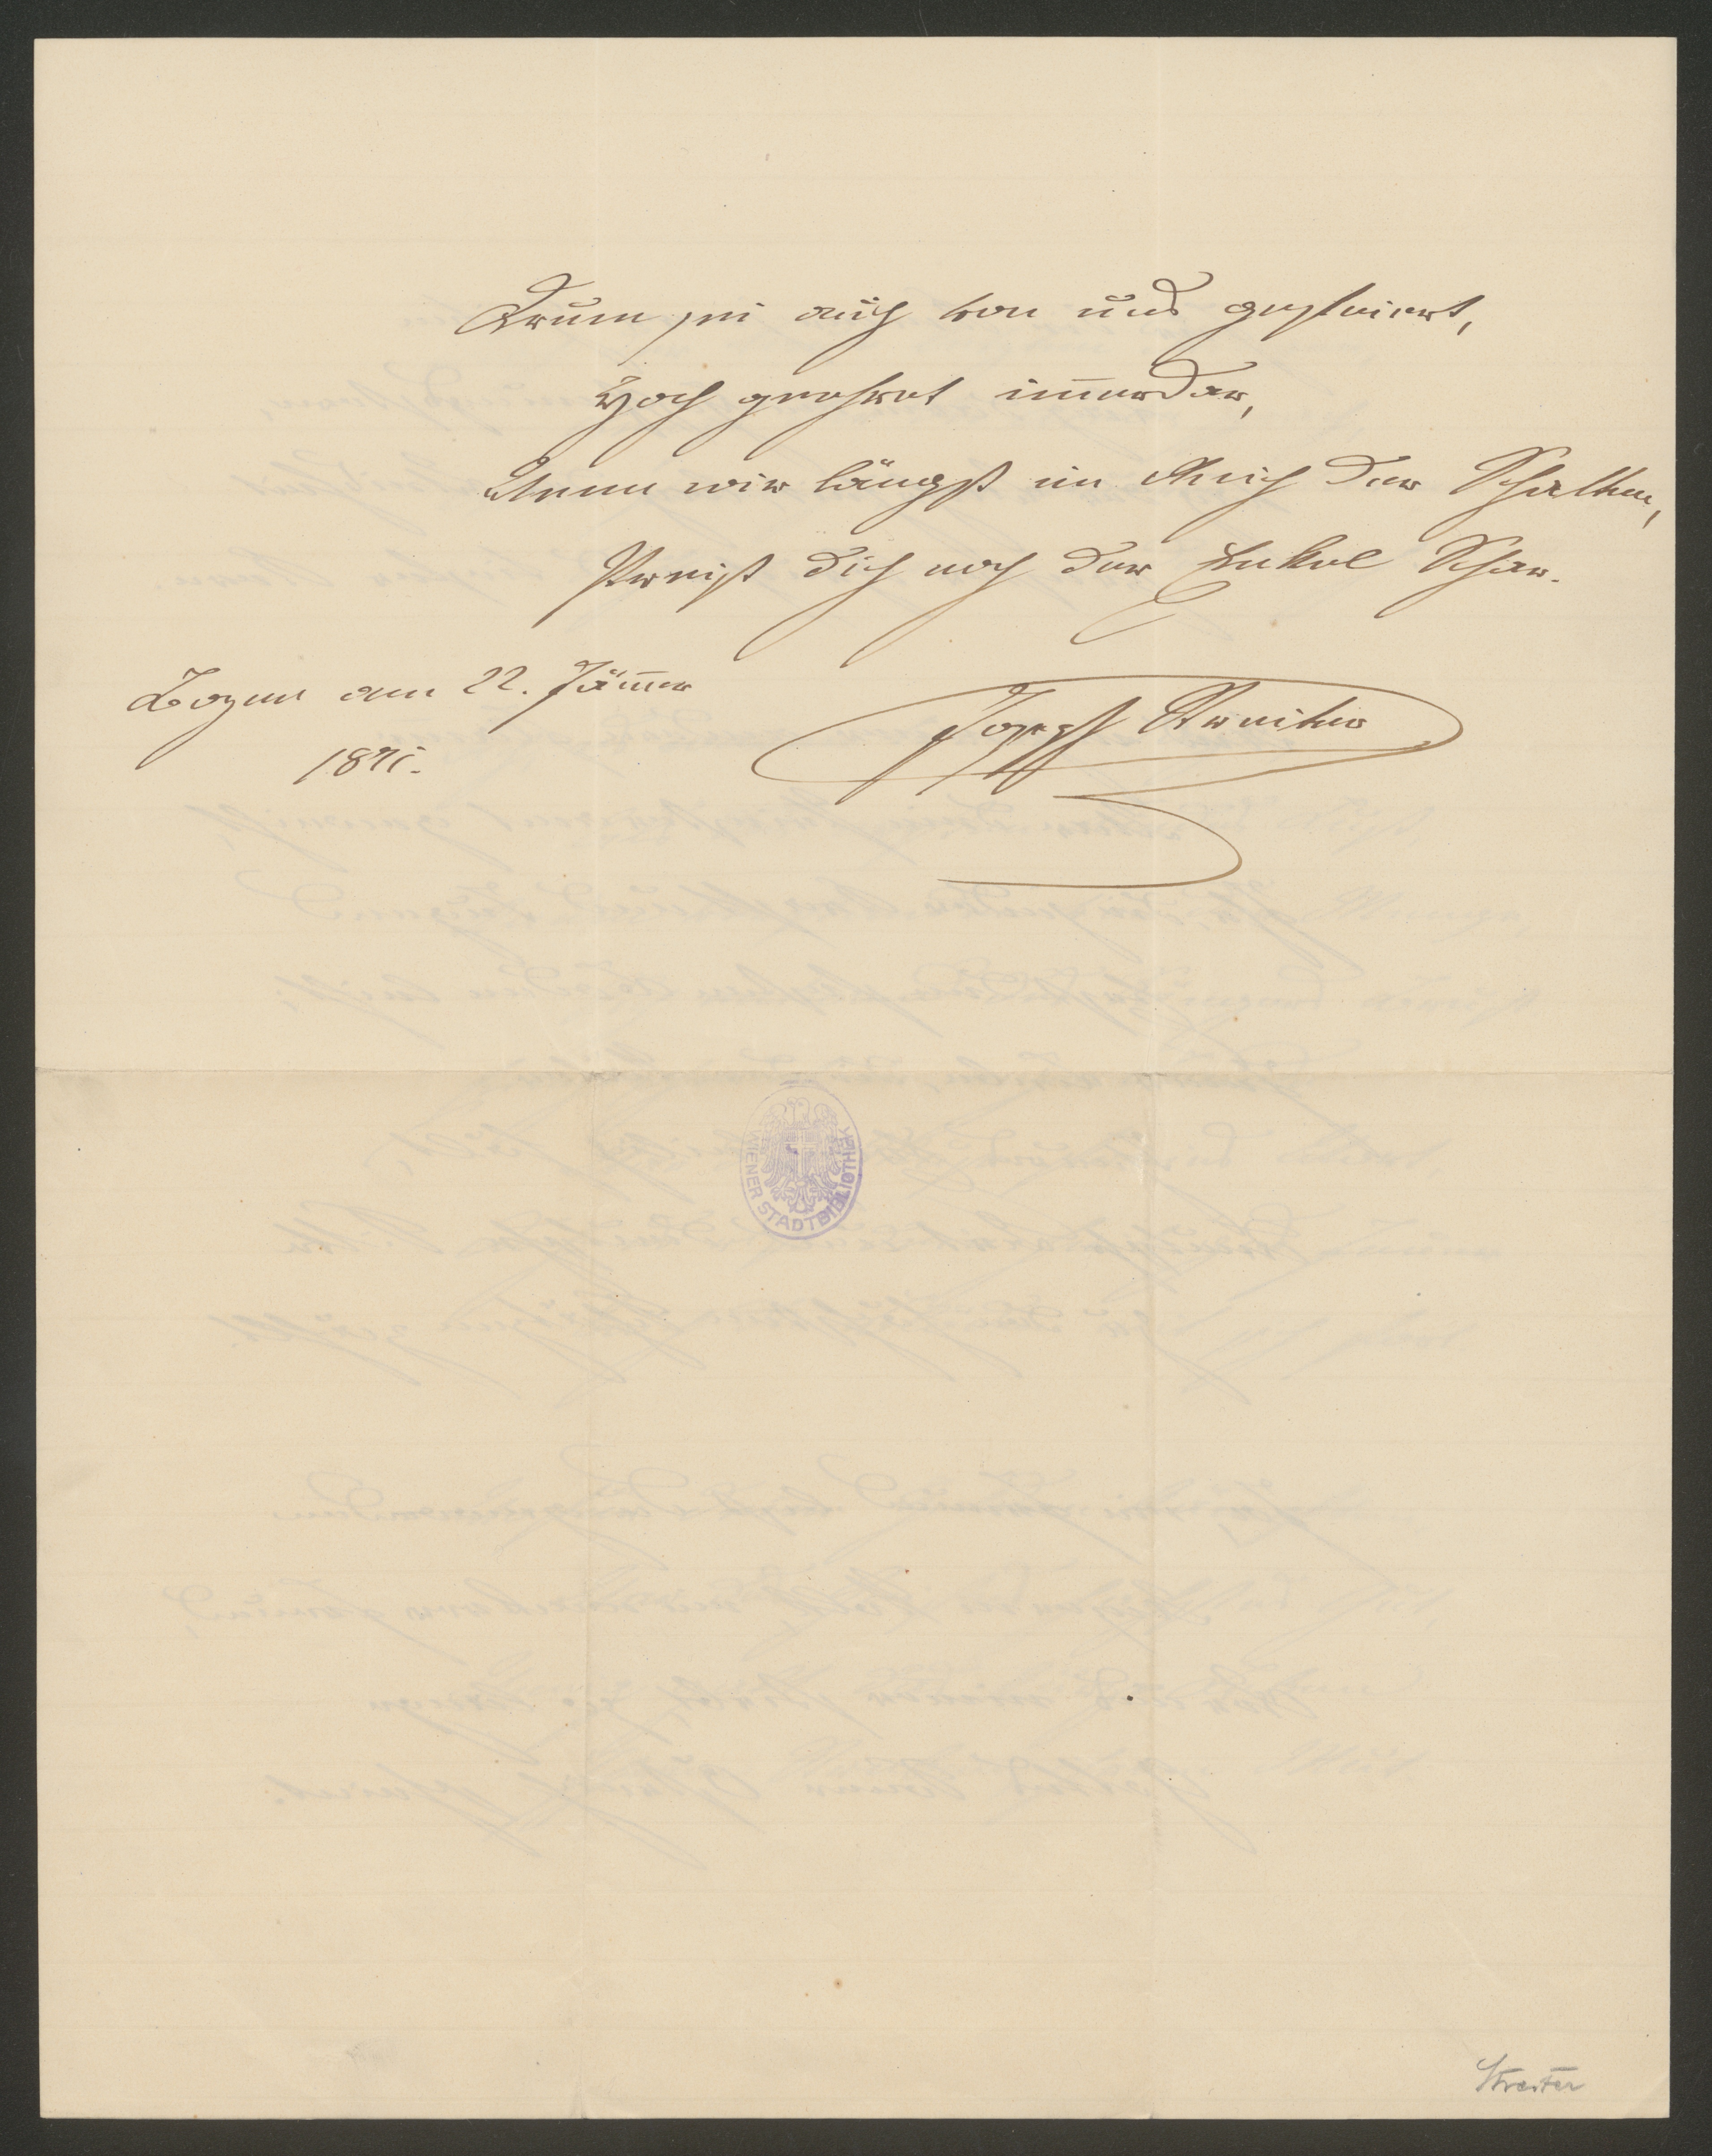 Drum sei auch von uns gefeiert,
Hoch geehret im̅erdar,
Wenn wir längst im Reich der Schatten,
Preist dich noch der Enkel Schar.
Bozen am 22. Jän̅er
1871.
Joseph Streiter
WIENER STADTBIBLIOTHEK
Streiter